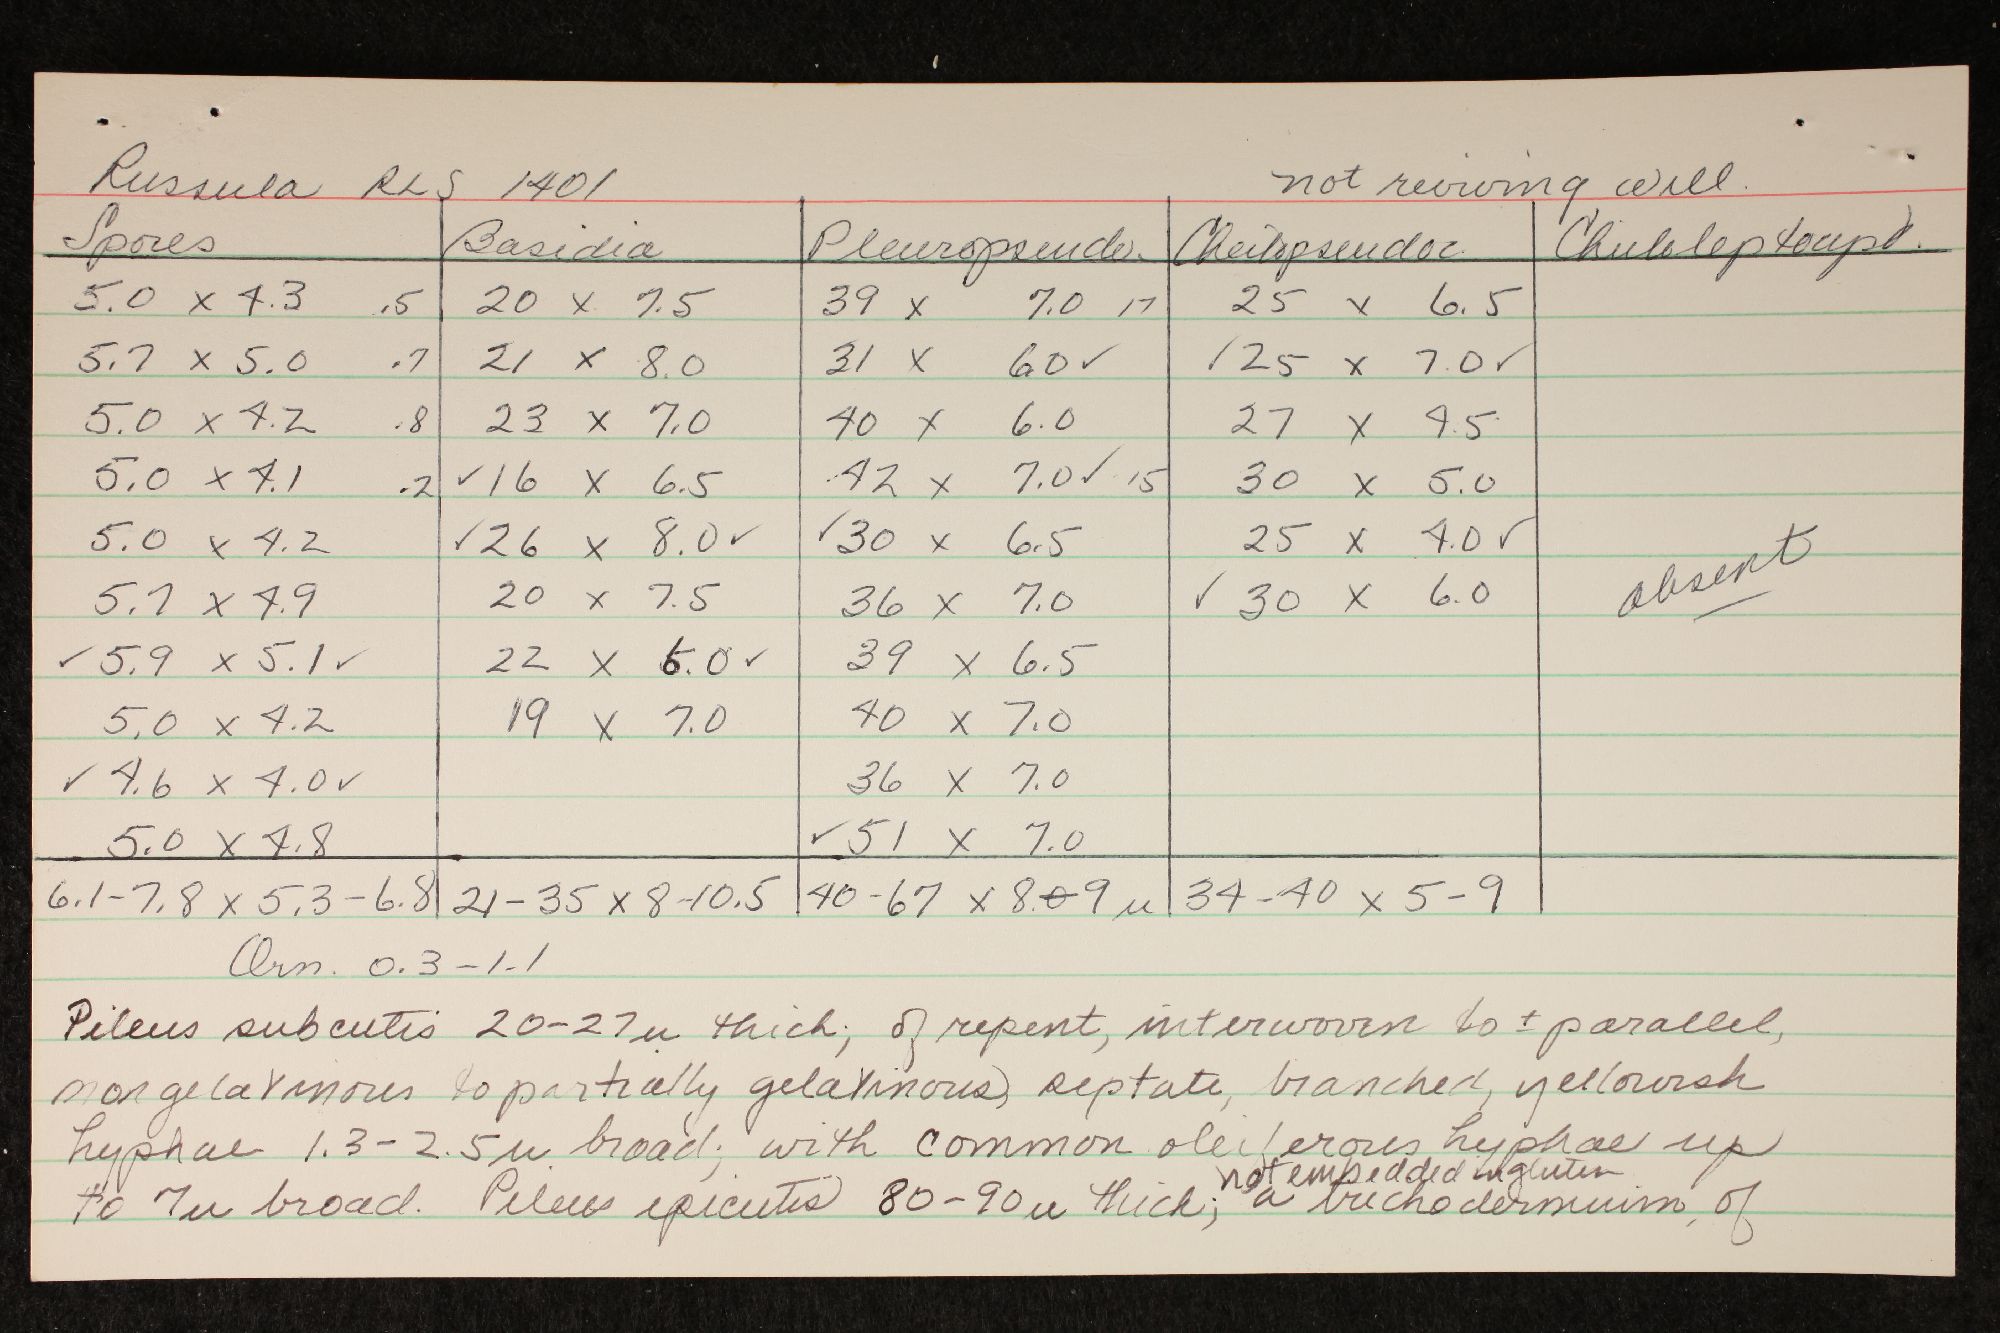 Russula RLS 1401 not reviving well.
Spores Basidia Pleuropseudo. Cheilopseudoc. Chieloleptocyst.
5.0 x 4.3 .5 20 x 7.5 39 x 7.0 17 25 x 6.5
5.7 x 5.0 .7 21 x 8.0 31 x 6.0 ✓ ✓ 25 x 7.0 ✓
5.0 x 4.2 .8 23 x 7.0 40 x 6.0 27 x 4.5
5.0 x 4.1 .2 ✓ 16 x 6.5 42 x 7.0 ✓ 15 30 x 5.0
5.0 x 4.2 ✓ 26 x 8.0 ✓ ✓ 30 x 6.5 25 x 4.0 ✓
5.7 x 4.9 20 x 7.5 36 x 7.0 ✓ 30 x 6.0 absent
✓ 5.9 x 5.1 ✓ 22 x 6.0 ✓ 39 x 6.5
5.0 x 4.2 19 x 7.0 40 x 7.0
✓ 4.6 x 4.0 ✓ 36 x 7.0
5.0 x 4.8 ✓ 51 x 7.0
6.1-7.8 x 5.3-6.8 21-35 x 8-10.5 40-67 x 8-9 u 34-40 x 5-9
Orn. 0.3-1.1
Pileus subcutis 20-27u thick; of repent, interwoven to ± parallel,
nongelatinous to partially gelatinous, septate, branched, yellowish
hyphae 1.3-2.5u broad; with common oleiferous hyphae up
not embedded in gluten
to 7u broad. Pileus epicutis 80-90u thick; a trichodermium, of